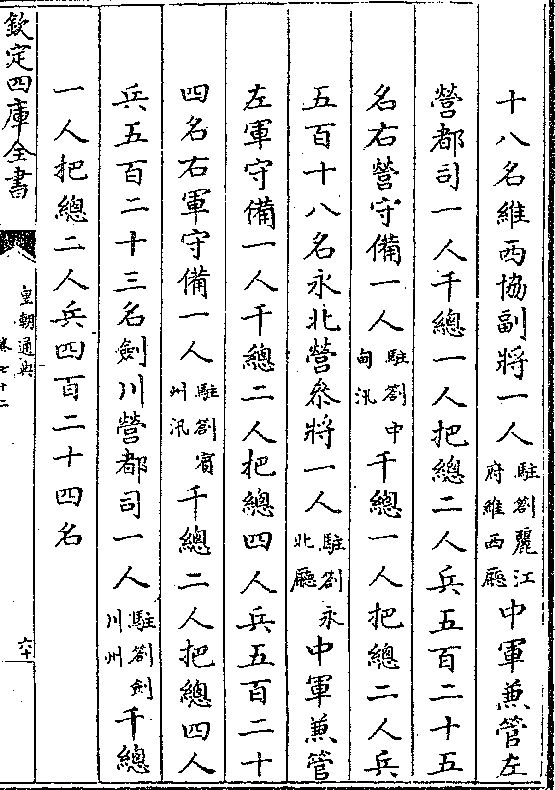 十八名維西協副將一人駐劄麗江府維西廳中軍兼管左
營都司一人千總一人把總二人兵五百二十五
名右營守備一人駐劄中甸汛千總一人把總二人兵
五百十八名永北營叅將一人駐劄永北廳中軍兼管
左軍守備一人千總二人把總四人兵五百二十
四名右軍守備一人駐劄賓州汛千總二人把總四人
兵五百二十三名劍川營都司一人駐劄劍川州千總
一人把總二人兵四百二十四名
欽定四庫全書
皇朝通典
卷七十二
六十